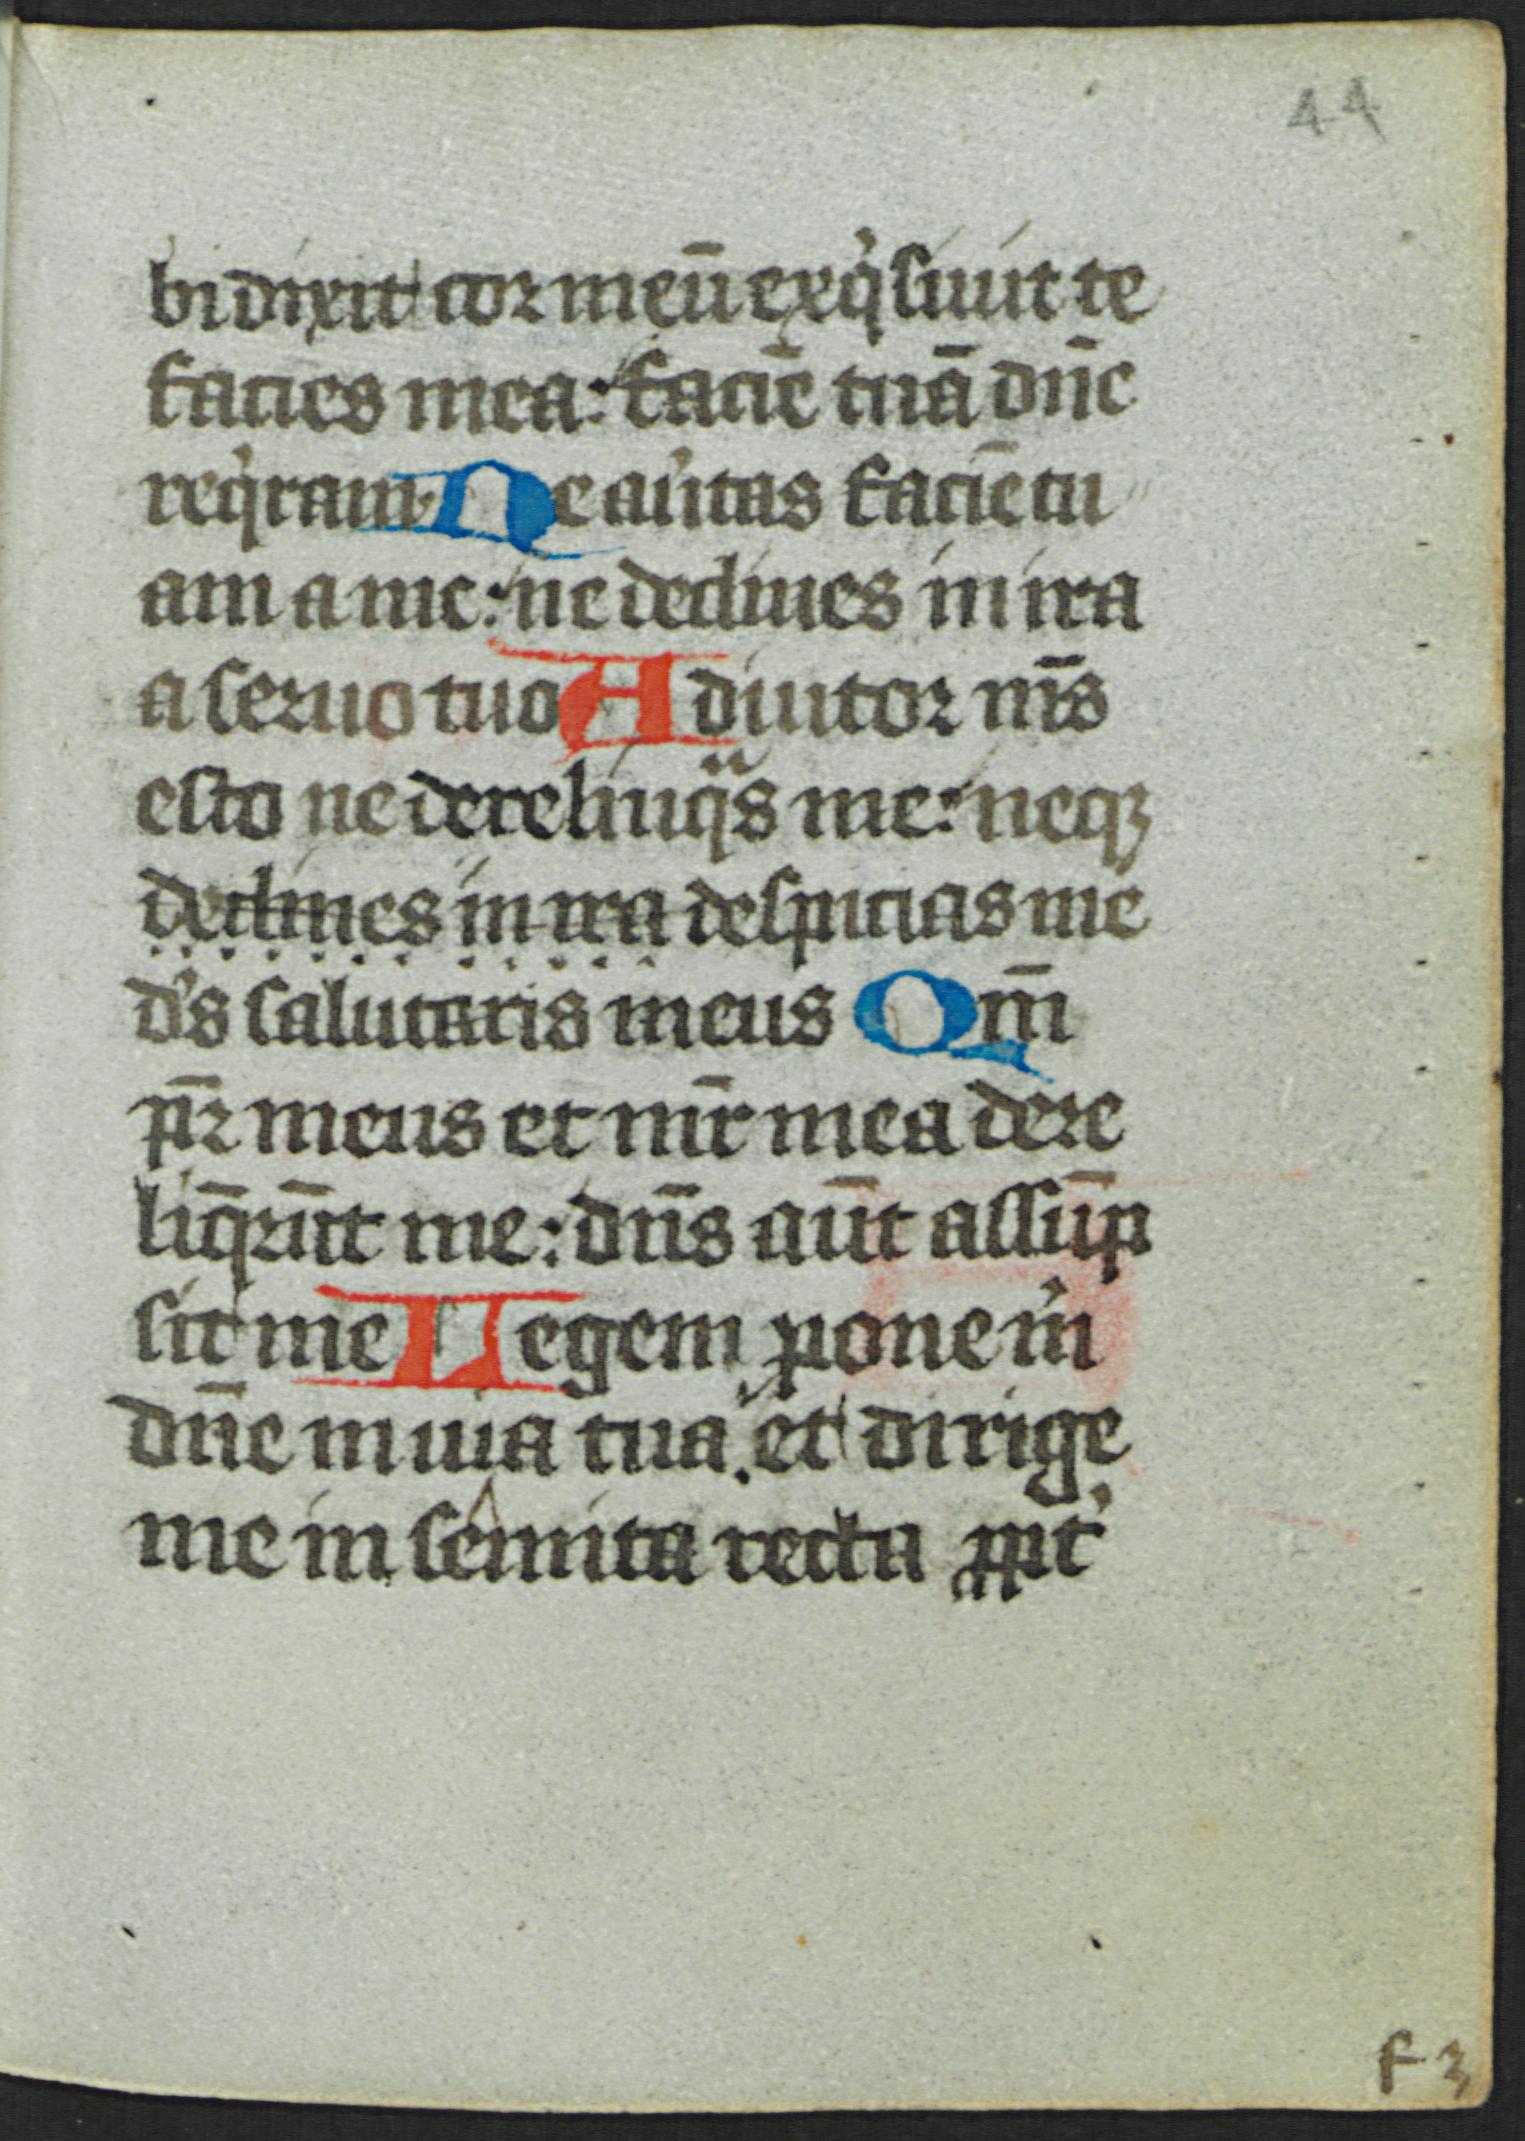 44
bi dixit cor meū exqͥsiuit te
facies mea: faciē tuā dn̄e
reqͥram Ne au̾tas faciē tu
am a me: ne declines in ira
a seruo tuo Adiutor m̄s
esto ne derelinqͣs me: neqꝫ
declines in ira despicias me
dˀs salutaris meus Qm̄
pr̄ meus et mr̄ mea dere
liq̄rūt me: dn̄s aūt assūp
sit me Legem pone mͥ
dn̄e in uia tua. et dirige
me in semita recta ꝓptˀ
f 3